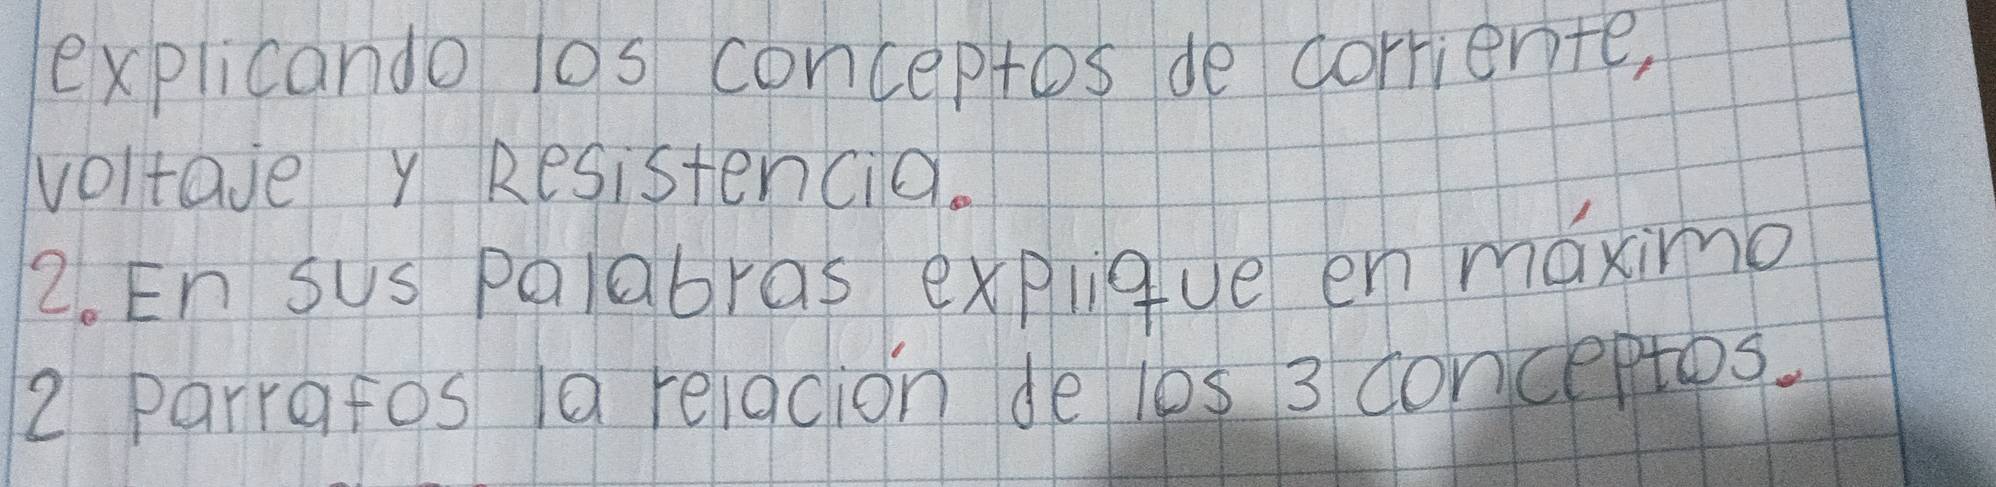 explicando los conceptos de corriente,
voltaje y Resistencia.
2. En sus palabras explique en máximo
2 parrafos la relación de los 3 conceptos.